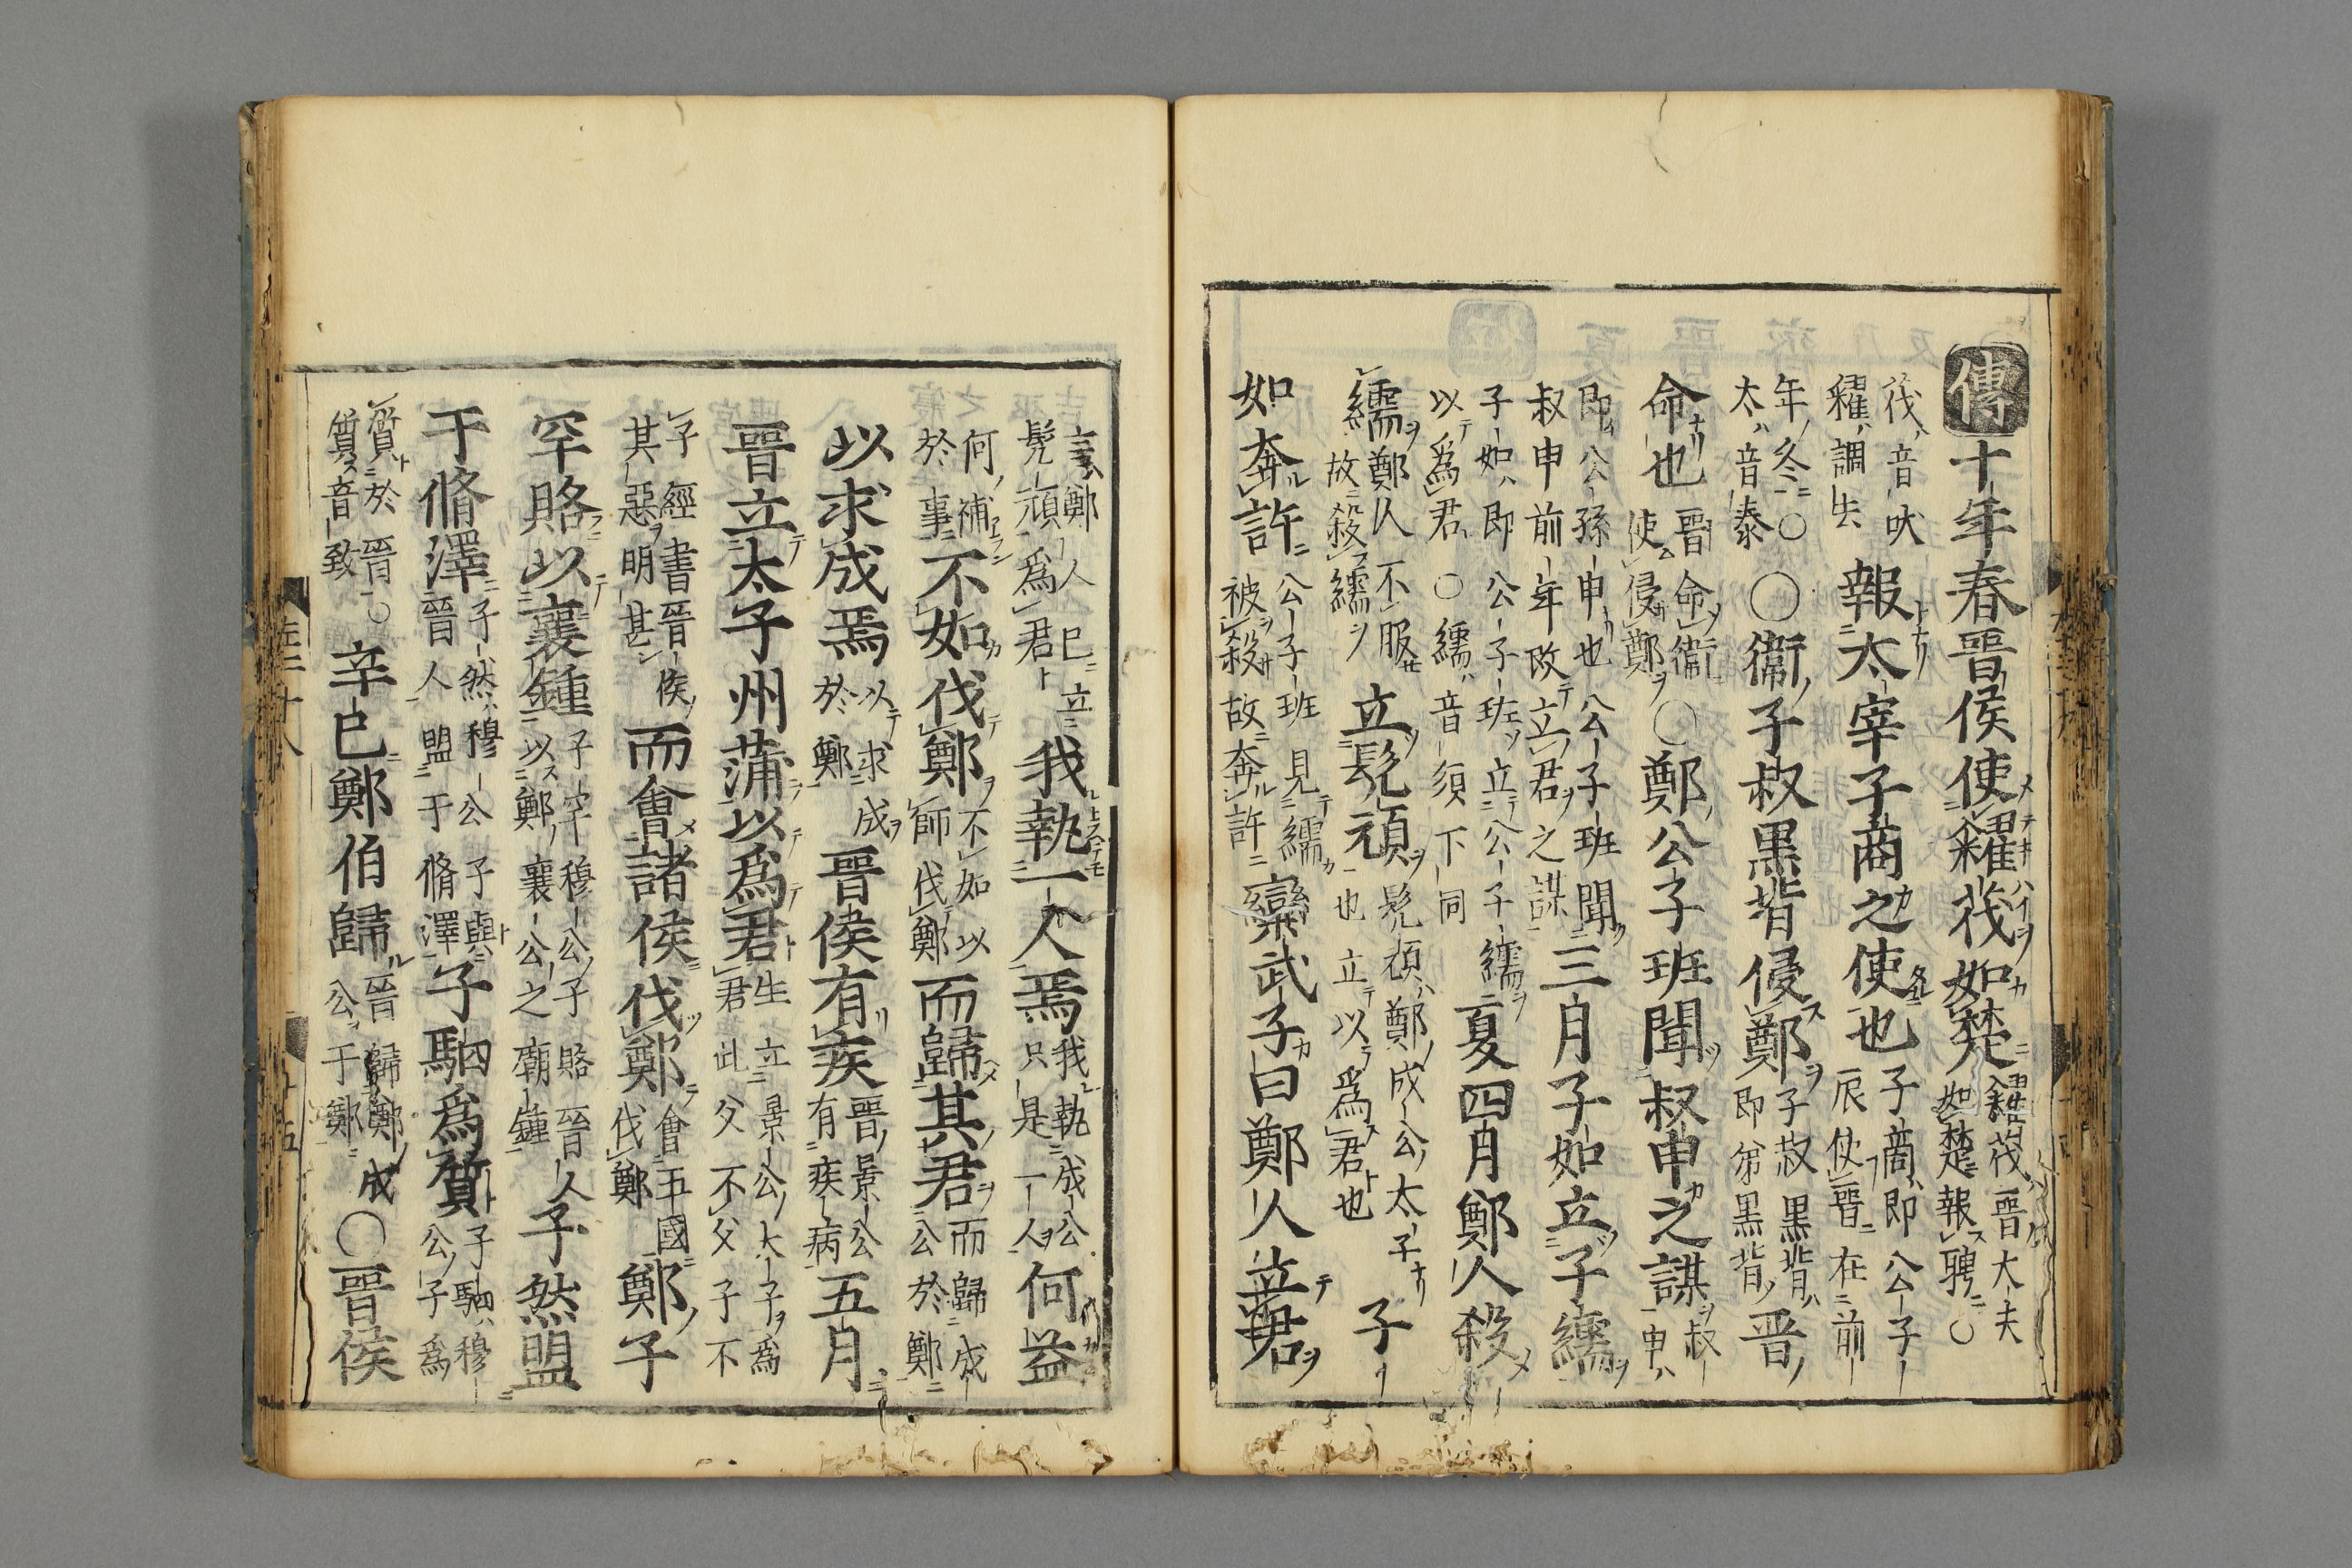 傳十年春晉侯使糴茷如楚糴茷晉大夫如楚報聘○
茷音吠糴調失報太宰子商之使也子商即公子辰使晉在前
年冬○太音泰○衞子叔黑背侵鄭子叔黑背即弟黑背晋
命也晉命衞使侵鄭○鄭公子班聞叔申之謀叔申
即公孫申也公子班聞叔申前年改立君之謀三月子如立子繻
子如即公子班立公子繻以爲君○繻音須下同夏四月鄭人殺
繻鄭人不服故殺繻立髡頑髡頑鄭成公太子也立以爲君也子
如奔許公子班見繻被殺故奔許欒武子曰鄭人立君
言鄭人已立髡頑爲君我執一人焉我執成公只是一人何益
何補於事不如伐鄭而歸其君不如以師伐鄭而歸成公於鄭
以求成焉以求成於鄭晉侯有疾晉景公有疾病五月
晉立太子州蒲以爲君而會諸侯伐鄭生立景公太子爲君此父不父子不
子經書晉侯其惡明甚會五國伐鄭鄭子
罕賂以襄鍾子罕穆公子賂晉人以鄭襄公之廟鍾子然盟
于脩澤子然穆公子與晉人盟于脩澤子駟爲質子駟穆公子爲
質於晉○質音致辛巳鄭伯歸晉歸鄭成公于鄭○晉侯